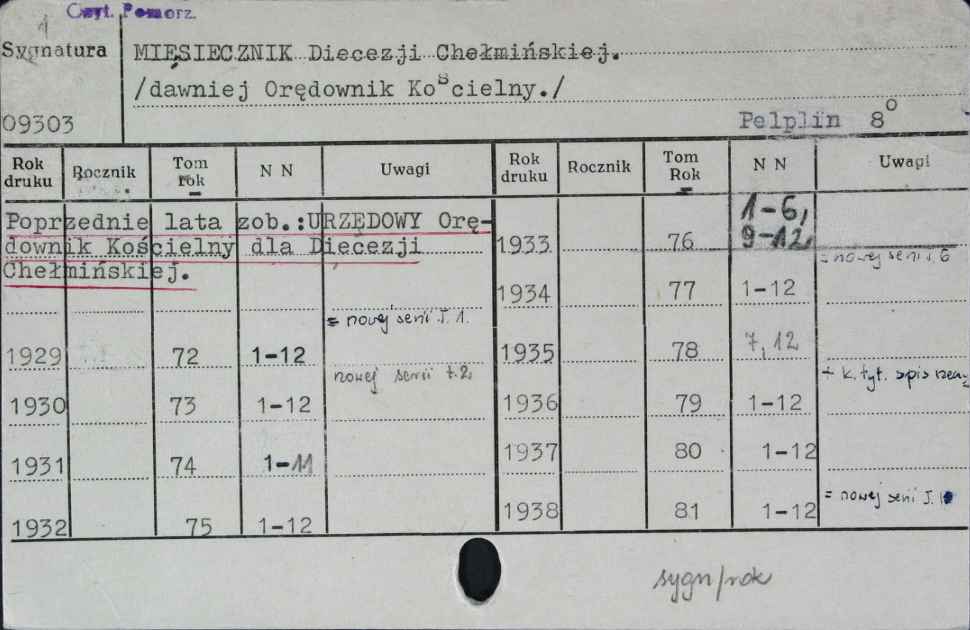 1
Czyt. Pomorz.
Sygnatura
MIĘSIECZNIK Diecezji Chełmińskiej.
/dawniej Orędownik Kościelny./
09303
Pelplin 8°
Rok druku Rocznik Tom rok N N Uwagi Rok druku Rocznik Tom Rok N N Uwagi
Poprzednie lata zob.:URZĘDOWY Orę-
downik Kościelny dla Diecezji
Chełmińskiej.
1929 72 1-12 = nowej serii T. 1.
1930 73 1-12 nowej serii t. 2.
1931 74 1-11
1932 75 1-12
1933 76 1-6, 9-12, = nowej serii t. 6
1934 77 1-12
1935 78 7, 12
1936 79 1-12 + k. tyt. spis
1937 80 1-12
1938 81 1-12 = nowej serii T.
sygn/rok